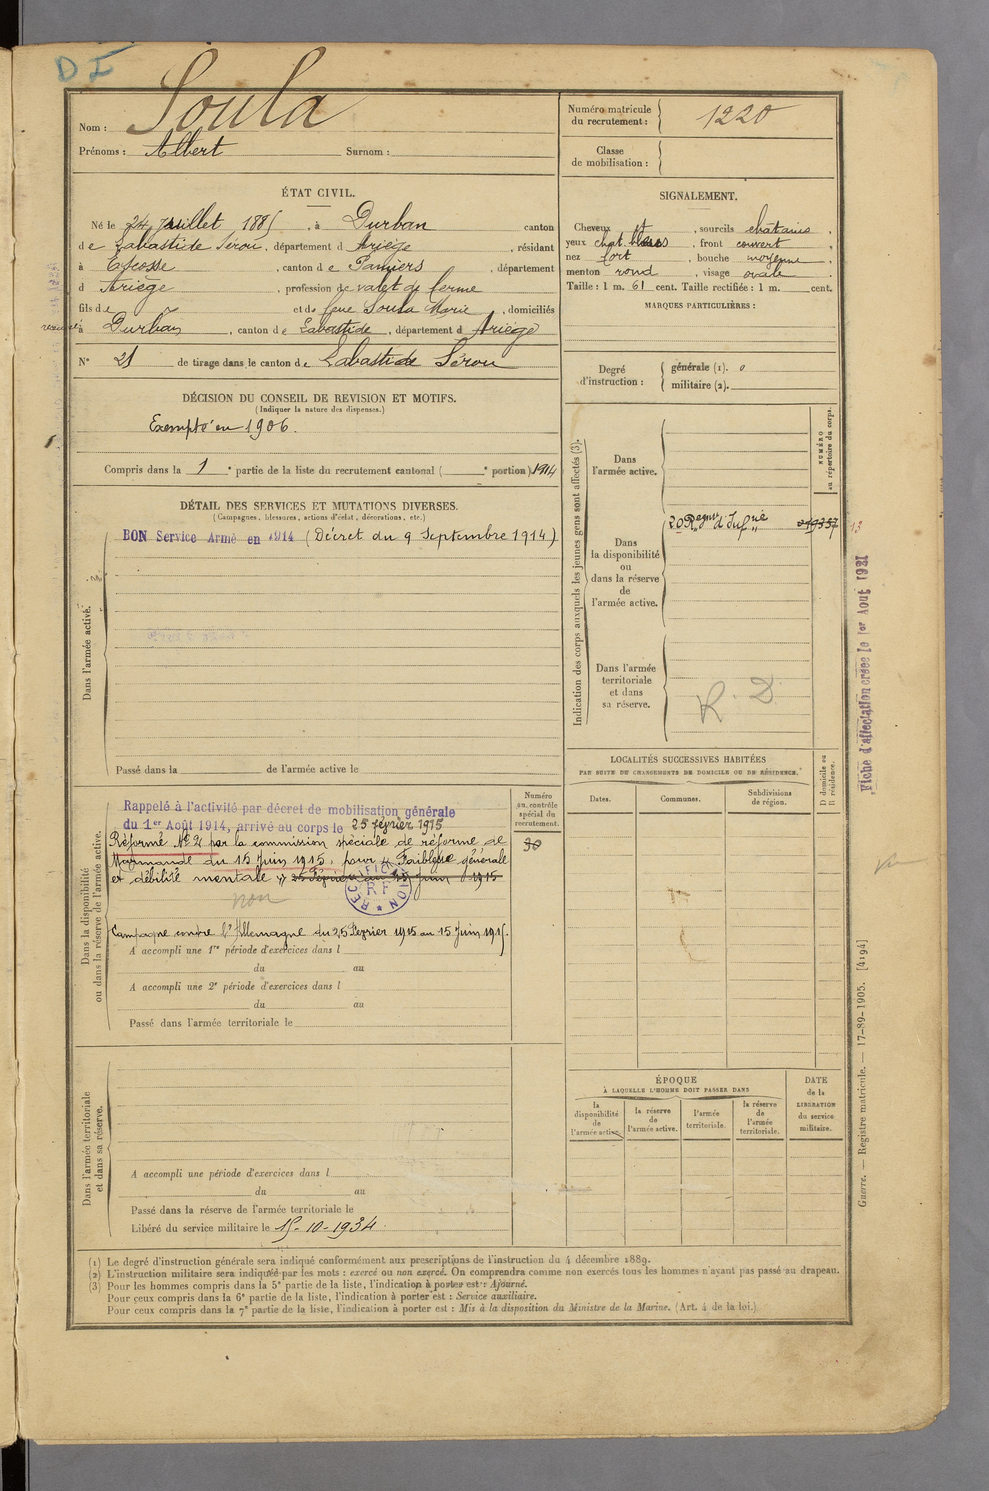 D I
Nom : Soula
Prénoms : Albert Surnom :
Numéro matricule du recrutement : 1220
Classe de mobilisation :
ÉTAT CIVIL.
Né le 24 Juillet 1885, à Durban canton
de Labastide Sérou, département d Ariège, résidant
à Escosse, canton de Pamiers, département
d Ariège, profession de valet de ferme
fils de et de feue Soula Marie, domiciliés
à Durban, canton de Labastide, département d Ariège
N° 21 de tirage dans le canton de Labastide Sérou
SIGNALEMENT.
Cheveux et, sourcils châtains,
yeux chat. , front couvert,
nez fort, bouche moyenne,
menton rond, visage ovale.
Taille : 1 m. 61 cent. Taille rectifiée : 1 m. cent.
MARQUES PARTICULIÈRES :
Degré d'instruction : générale (1). 0
militaire (2).
DÉCISION DU CONSEIL DE REVISION ET MOTIFS.
(Indiquer la nature des dispenses.)
Exempté en 1906.
Compris dans la 1e partie de la liste du recrutement cantonal ( e portion) 1914
DÉTAIL DES SERVICES ET MUTATIONS DIVERSES.
(Campagnes, blessures, actions d'éclat, décorations, etc.)
BON Service Armé en 1914 (Décret du 9 Septembre 1914)
Dans l'armée active.
Passé dans la de l'armée active le
Indication des corps auxquels les jeunes gens sont affectés (3).
NUMÉRO au répertoire du corps.
Dans l'armée active.
Dans la disponibilité ou dans la réserve de l'armée active.
20 Regmt d'Infrie
Dans l'armée territoriale et dans sa réserve.
R. D.
Fiche d'affectation créée le 1er Aout 1921
LOCALITÉS SUCCESSIVES HABITÉES
PAR SUITE DE CHANGEMENTS DE DOMICILE OU DE RÉSIDENCE.
Dates. Communes. Subdivisions de région. D domicile ou R résidence.
Dans la disponibilité ou dans la réserve de l'armée active.
Numéro au contrôle spécial du recrutement.
30
Rappelé à l'activité par décret de mobilisation générale
du 1er Août 1914, arrivé au corps le 25 février 1915
Réformé N° 2 par la commission spéciale de réforme de
Marmande du 15 Juin 1915, pour « Faiblesse générale
et débilité mentale » 25 Février au 15 Juin 1915
RECTIFICATION RF
non
Campagne contre l'Allemagne du 25 Février 1915 au 15 Juin 1915.
A accompli une 1re période d'exercices dans l
du au
A accompli une 2e période d'exercices dans l
du au
Passé dans l'armée territoriale le
Dans l'armée territoriale et dans sa réserve.
A accompli une période d'exercices dans l
du au
Passé dans la réserve de l'armée territoriale le
Libéré du service militaire le 15-10-1934
ÉPOQUE
À LAQUELLE L'HOMME DOIT PASSER DANS
la disponibilité de l'armée active.
la réserve de l'armée active.
l'armée territoriale.
la réserve de l'armée territoriale.
DATE de la LIBÉRATION du service militaire.
Guerre. — Registre matricule. — 17-89-1905. [4194]
(1) Le degré d'instruction générale sera indiqué conformément aux prescriptions de l'instruction du 4 décembre 1889.
(2) L'instruction militaire sera indiquée par les mots : exercé ou non exercé. On comprendra comme non exercés tous les hommes n'ayant pas passé au drapeau.
(3) Pour les hommes compris dans la 5e partie de la liste, l'indication à porter est : Ajourné.
Pour ceux compris dans la 6e partie de la liste, l'indication à porter est : Service auxiliaire.
Pour ceux compris dans la 7e partie de la liste, l'indication à porter est : Mis à la disposition du Ministre de la Marine. (Art. 4 de la loi.)